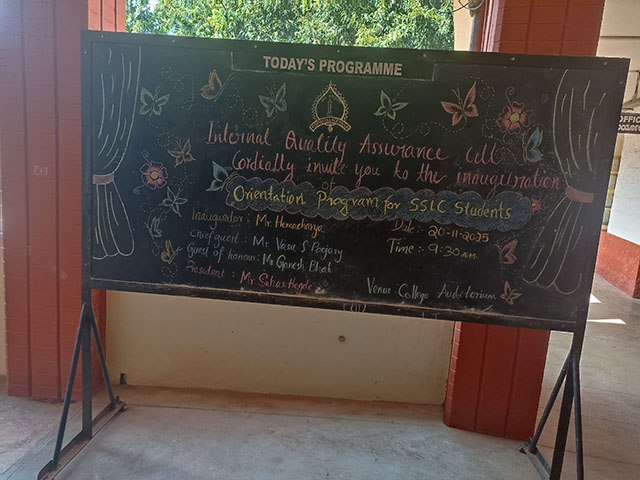 TODAY'S PROGRAMME
Internal Quality Assurance Cell
Cordially invite you to the inauguration
of
Orientation Program for SSLC Students
Inaugurator : Mr. Hemacharya
Date : 20-11-2025
Chief guest : Mr. Vasu S Poojary
Time : 9:30 AM
Guest of honour : Mr Ganesh Bhat
President : Mr Suhas Hegde
Venue College Auditorium
OFFIC